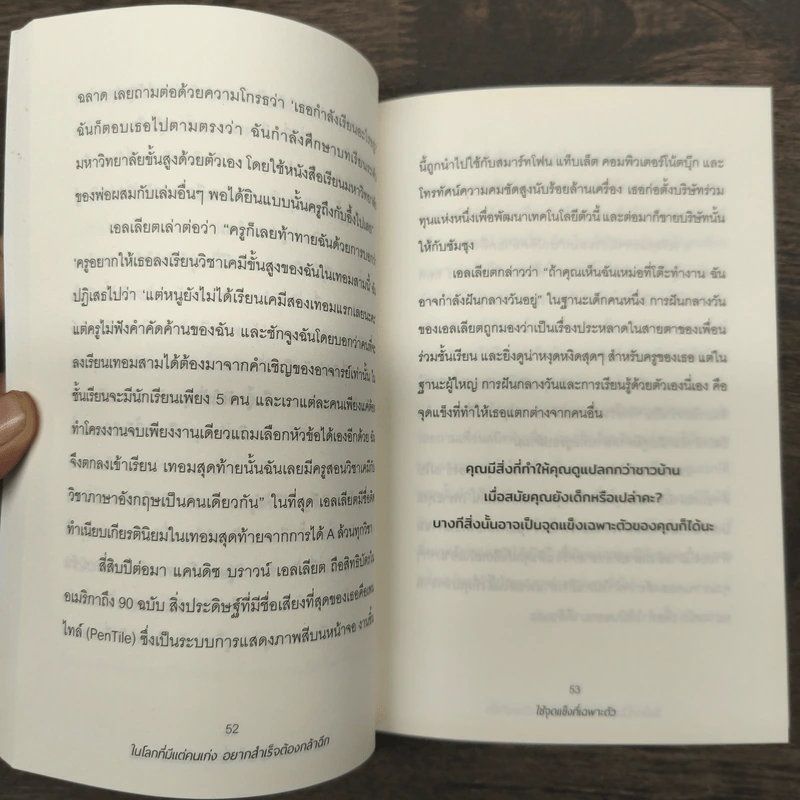 ฉลาด เลยถามต่อด้วยความโกรธว่า 'เธอกำลังเรียนอะไร
ฉันก็ตอบเธอไปตามตรงว่า ฉันกำลังศึกษาบทเรียน
มหาวิทยาลัยขั้นสูงด้วยตัวเอง โดยใช้หนังสือเรียนมหาวิทยาลัย
ของพ่อผสมกับเล่มอื่นๆ พอได้ยินแบบนั้นครูถึงกับอึ้งไปเลย"
เอลเลียตเล่าต่อว่า "ครูก็เลยท้าทายฉันด้วยการบอกว่า
'ครูอยากให้เธอลงเรียนวิชาเคมีขั้นสูงของฉันในเทอมสามนี้
ปฏิเสธไปว่า 'แต่หนูยังไม่ได้เรียนเคมีสองเทอมแรกเลยนะคะ
แต่ครูไม่ฟังคำคัดค้านของฉัน และชักจูงฉันโดยบอกว่าคนที่
ลงเรียนเทอมสามได้ต้องมาจากคำเชิญของอาจารย์เท่านั้น ใน
ชั้นเรียนจะมีนักเรียนเพียง 5 คน และเราแต่ละคนเพียงแค่ต้อง
ทำโครงงานจบเพียงงานเดียวแถมเลือกหัวข้อได้เองอีกด้วย ฉัน
จึงตกลงเข้าเรียน เทอมสุดท้ายนั้นฉันเลยมีครูสอนวิชาเคมีกับ
วิชาภาษาอังกฤษเป็นคนเดียวกัน" ในที่สุด เอลเลียตมีชื่อติด
ทำเนียบเกียรตินิยมในเทอมสุดท้ายจากการได้ A ล้วนทุกวิชา
สี่สิบปีต่อมา แคนดิซ บราวน์ เอลเลียต ถือสิทธิบัตรใน
อเมริกาถึง 90 ฉบับ สิ่งประดิษฐ์ที่มีชื่อเสียงที่สุดของเธอคือเพน
ไทล์ (PenTile) ซึ่งเป็นระบบการแสดงภาพสีบนหน้าจอ งานชิ้น
52
ในโลกที่มีแต่คนเก่ง อยากสำเร็จต้องกล้าฉีก
นี้ถูกนำไปใช้กับสมาร์ทโฟน แท็บเล็ต คอมพิวเตอร์โน้ตบุ๊ก และ
โทรทัศน์ความคมชัดสูงนับร้อยล้านเครื่อง เธอก่อตั้งบริษัทร่วม
ทุนแห่งหนึ่งเพื่อพัฒนาเทคโนโลยีตัวนี้ และต่อมาก็ขายบริษัทนั้น
ให้กับซัมซุง
เอลเลียตกล่าวว่า "ถ้าคุณเห็นฉันเหม่อที่โต๊ะทำงาน ฉัน
อาจกำลังฝันกลางวันอยู่" ในฐานะเด็กคนหนึ่ง การฝันกลางวัน
ของเอลเลียตถูกมองว่าเป็นเรื่องประหลาดในสายตาของเพื่อน
ร่วมชั้นเรียน และยิ่งดูน่าหงุดหงิดสุดๆ สำหรับครูของเธอ แต่ใน
ฐานะผู้ใหญ่ การฝันกลางวันและการเรียนรู้ด้วยตัวเองนี่เอง คือ
จุดแข็งที่ทำให้เธอแตกต่างจากคนอื่น
คุณมีสิ่งที่ทำให้คุณดูแปลกกว่าชาวบ้าน
เมื่อสมัยคุณยังเด็กหรือเปล่าคะ?
บางทีสิ่งนั้นอาจเป็นจุดแข็งเฉพาะตัวของคุณก็ได้นะ
53
ใช้จุดแข็งที่เฉพาะตัว